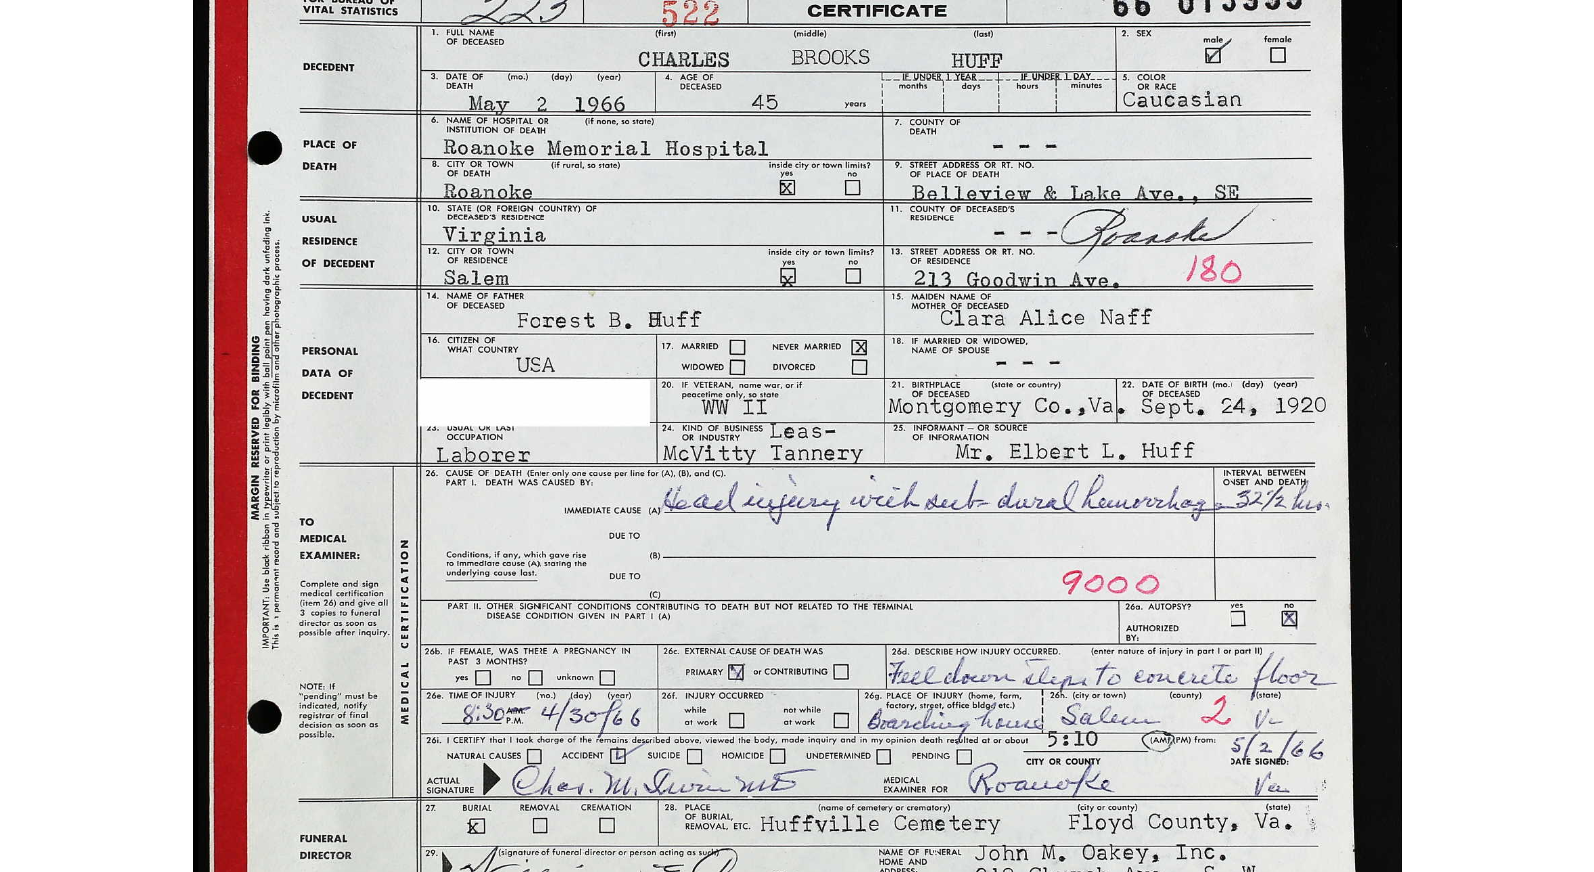 VITAL STATISTICS 223 522 CERTIFICATE
1. FULL NAME OF DECEASED (first) (middle) (last) 2. SEX male female
DECEDENT CHARLES BROOKS HUFF
3. DATE OF DEATH (mo.) (day) (year) 4. AGE OF DECEASED IF UNDER 1 YEAR months days IF UNDER 1 DAY hours minutes 5. COLOR OR RACE
May 2 1966 45 years Caucasian
6. NAME OF HOSPITAL OR INSTITUTION OF DEATH (if none, so state) 7. COUNTY OF DEATH
PLACE OF DEATH Roanoke Memorial Hospital - - -
8. CITY OR TOWN OF DEATH (if rural, so state) inside city or town limits? yes no 9. STREET ADDRESS OR RT. NO. OF PLACE OF DEATH
Roanoke X Belleview & Lake Ave., SE
10. STATE (OR FOREIGN COUNTRY) OF DECEASED'S RESIDENCE 11. COUNTY OF DECEASED'S RESIDENCE
USUAL RESIDENCE OF DECEDENT Virginia - - - Roanoke
12. CITY OR TOWN OF RESIDENCE inside city or town limits? yes no 13. STREET ADDRESS OR RT. NO. OF RESIDENCE
Salem X 213 Goodwin Ave. 180
14. NAME OF FATHER OF DECEASED 15. MAIDEN NAME OF MOTHER OF DECEASED
Forest B. Huff Clara Alice Naff
PERSONAL DATA OF DECEDENT
16. CITIZEN OF WHAT COUNTRY 17. MARRIED NEVER MARRIED X 18. IF MARRIED OR WIDOWED, NAME OF SPOUSE
USA WIDOWED DIVORCED - - -
20. IF VETERAN, name war, or if peacetime only, so state 21. BIRTHPLACE OF DECEASED (state or country) 22. DATE OF BIRTH OF DECEASED (mo.) (day) (year)
WW II Montgomery Co.,Va. Sept. 24, 1920
23. USUAL OR LAST OCCUPATION 24. KIND OF BUSINESS OR INDUSTRY Leas- 25. INFORMANT – OR SOURCE OF INFORMATION
Laborer McVitty Tannery Mr. Elbert L. Huff
MARGIN RESERVED FOR BINDING
IMPORTANT: Use black ribbon in typewriter or print legibly with ball point pen having dark unfading ink.
This is a permanent record and subject to reproduction by microfilm and other photographic process.
TO MEDICAL EXAMINER:
Complete and sign medical certification (item 26) and give all 3 copies to funeral director as soon as possible after inquiry.
NOTE: If "pending" must be indicated, notify registrar of final decision as soon as possible.
MEDICAL CERTIFICATION
26. CAUSE OF DEATH (Enter only one cause per line for (A), (B), and (C). INTERVAL BETWEEN ONSET AND DEATH
PART I. DEATH WAS CAUSED BY:
IMMEDIATE CAUSE (A) Head injury with sub-dural hemorrhage 32 1/2 hrs.
DUE TO
Conditions, if any, which gave rise to immediate cause (A), stating the underlying cause last. (B)
DUE TO 9000
(C)
PART II. OTHER SIGNIFICANT CONDITIONS CONTRIBUTING TO DEATH BUT NOT RELATED TO THE TERMINAL DISEASE CONDITION GIVEN IN PART I (A) 26a. AUTOPSY? yes no X
AUTHORIZED BY:
26b. IF FEMALE, WAS THERE A PREGNANCY IN PAST 3 MONTHS? 26c. EXTERNAL CAUSE OF DEATH WAS 26d. DESCRIBE HOW INJURY OCCURRED. (enter nature of injury in part I or part II)
yes no unknown PRIMARY or CONTRIBUTING Feel down steps to concrete floor
26e. TIME OF INJURY (mo.) (day) (year) 26f. INJURY OCCURRED 26g. PLACE OF INJURY (home, farm, factory, street, office bldg. etc.) 26h. (city or town) (county) (state)
8:30 A.M. P.M. 4/30/66 while at work not while at work Boarding house Salem 2 Va
26i. I CERTIFY that I took charge of the remains described above, viewed the body, made inquiry and in my opinion death resulted at or about 5:10 (AM) (PM) from: 5/2/66
NATURAL CAUSES ACCIDENT SUICIDE HOMICIDE UNDETERMINED PENDING CITY OR COUNTY DATE SIGNED:
ACTUAL SIGNATURE Chas. M. Irvin MD MEDICAL EXAMINER FOR Roanoke Va
27. BURIAL REMOVAL CREMATION 28. PLACE OF BURIAL, REMOVAL, ETC. (name of cemetery or crematory) (city or county) (state)
X Huffville Cemetery Floyd County, Va.
FUNERAL DIRECTOR
29. (signature of funeral director or person acting as such) NAME OF FUNERAL HOME AND ADDRESS: John M. Oakey, Inc.